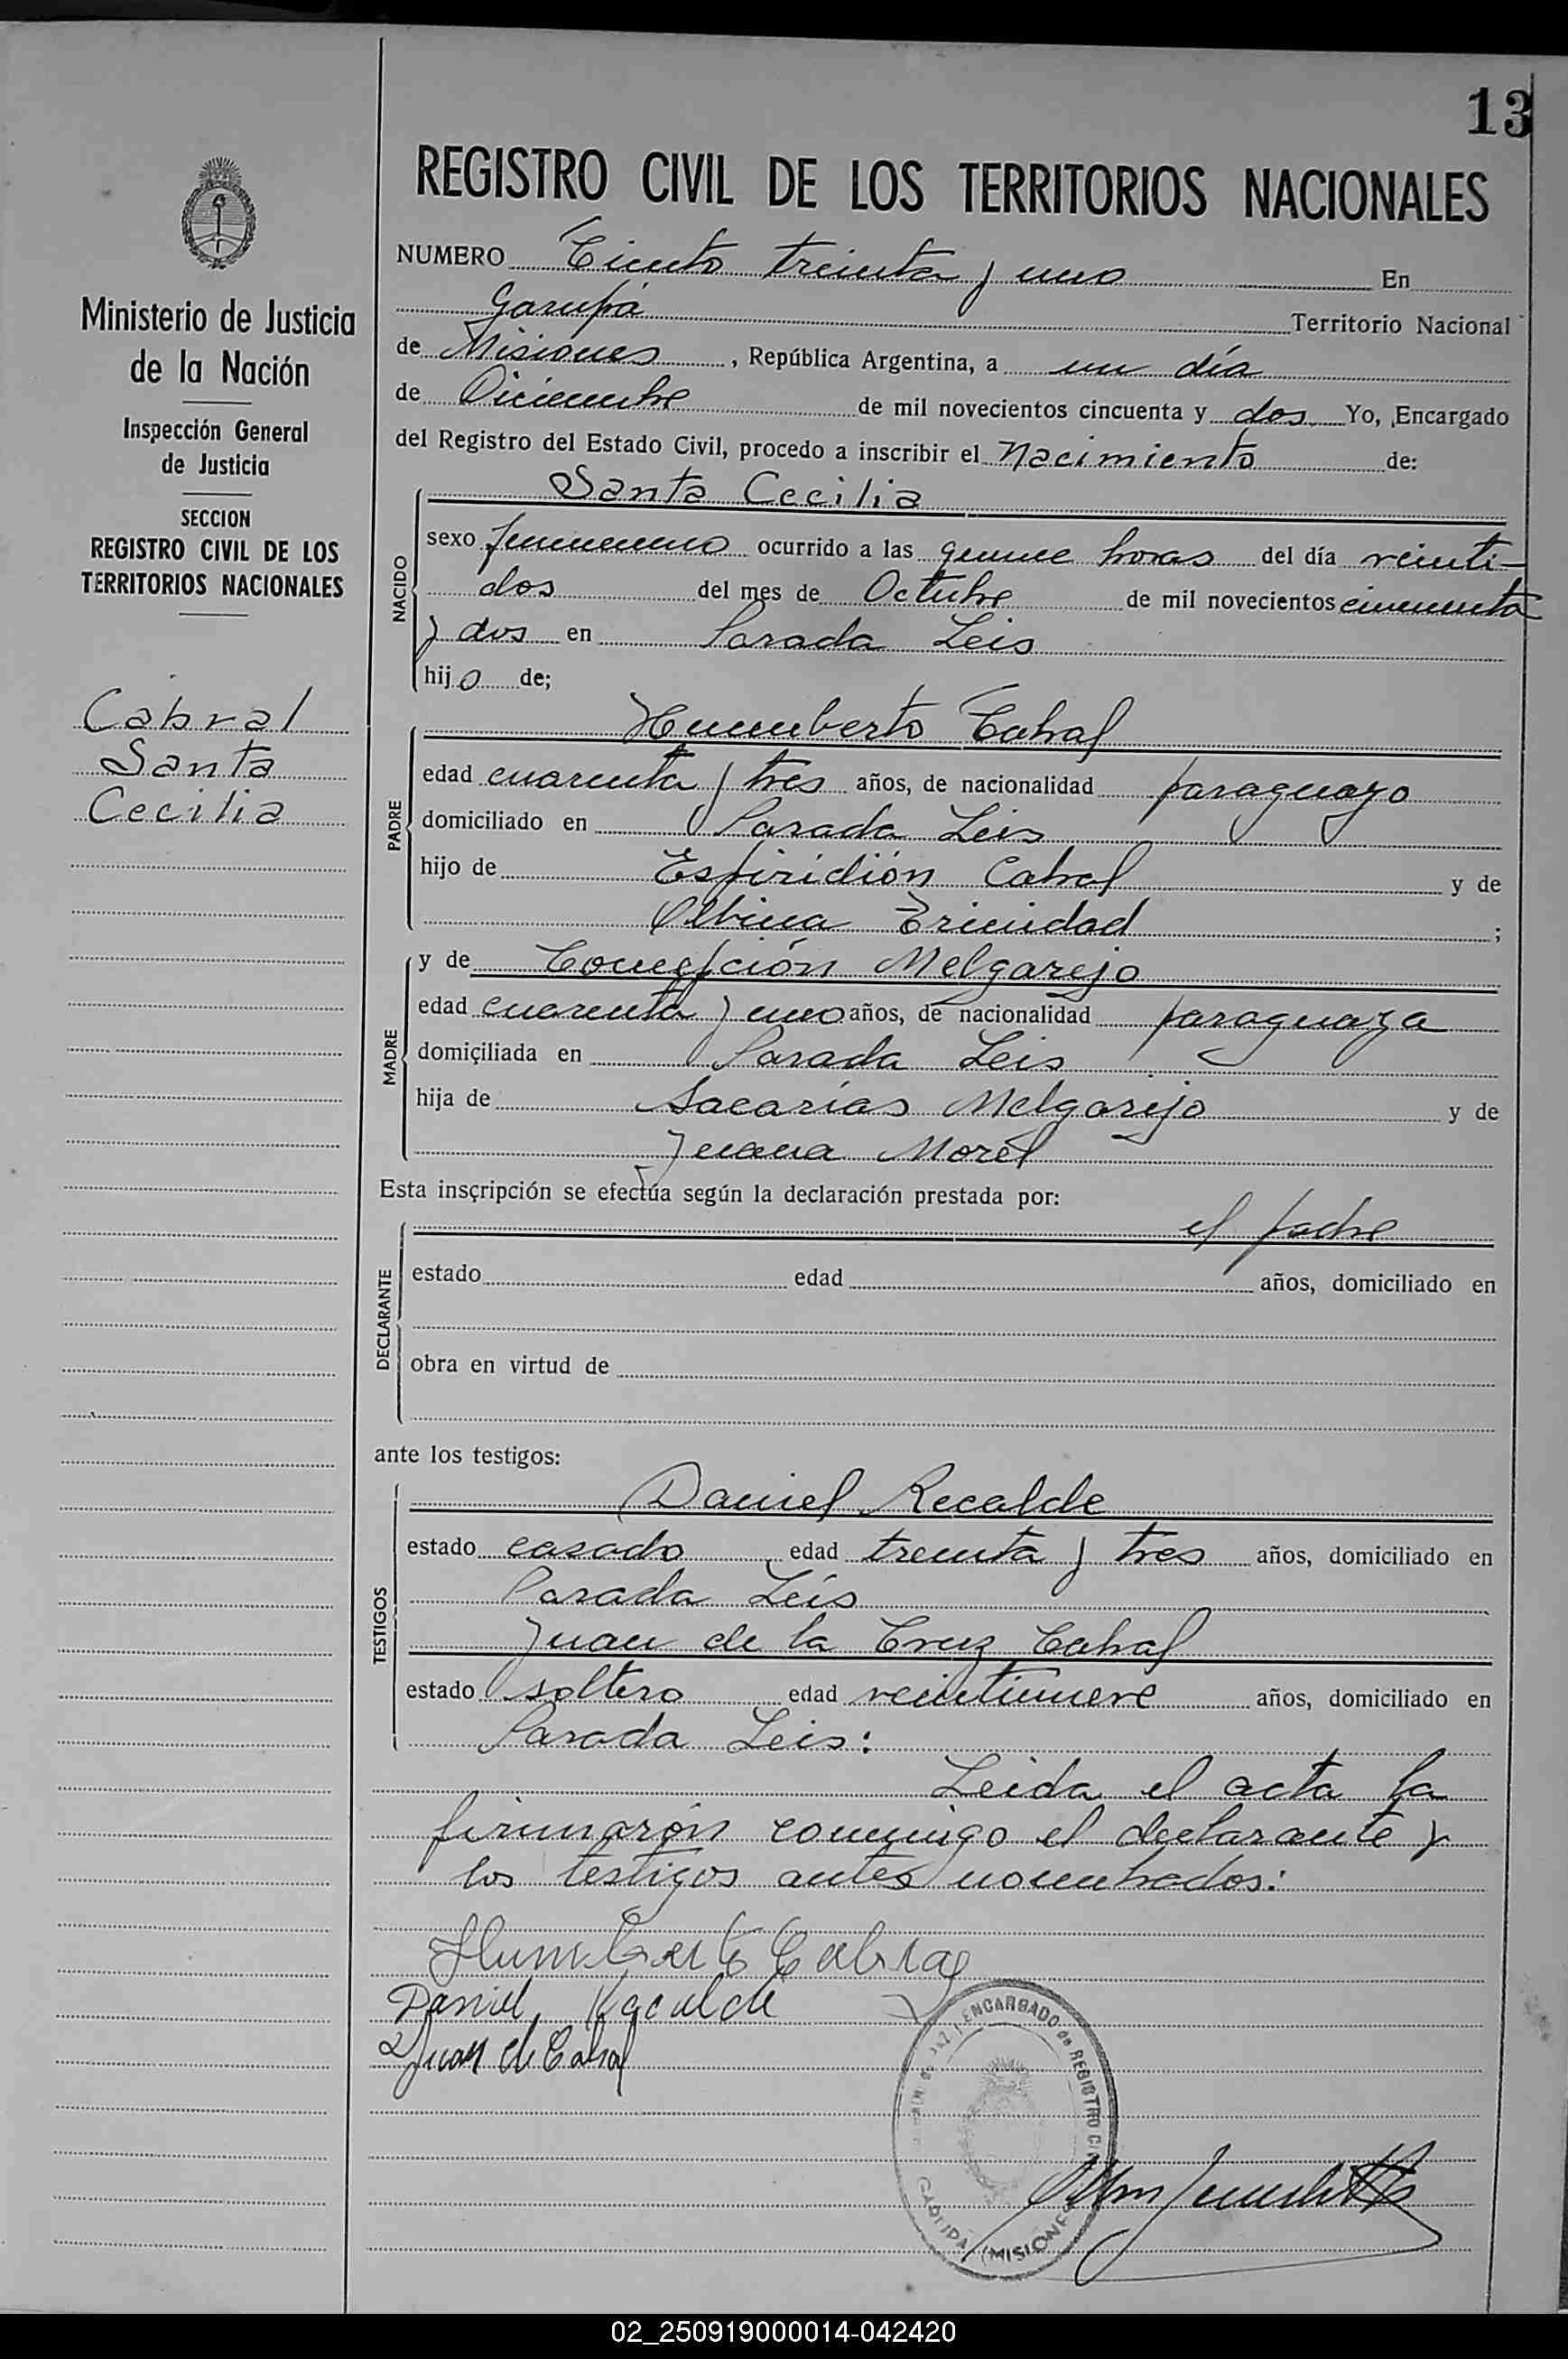 13
REGISTRO CIVIL DE LOS TERRITORIOS NACIONALES
Ministerio de Justicia
de la Nación
Inspección General
de Justicia
SECCION
REGISTRO CIVIL DE LOS
TERRITORIOS NACIONALES
Cabral
Santa
Cecilia
NUMERO Ciento treinta y uno En
Garupá Territorio Nacional
de Misiones, República Argentina, a un día
de Diciembre de mil novecientos cincuenta y dos Yo, Encargado
del Registro del Estado Civil, procedo a inscribir el Nacimiento de:
NACIDO
Santa Cecilia
sexo femenino ocurrido a las quince horas del día veinti-
dos del mes de Octubre de mil novecientos cincuenta
y dos en Parada Leis
hijo de;
PADRE
Humberto Cabral
edad cuarenta y tres años, de nacionalidad paraguayo
domiciliado en Parada Leis
hijo de Espiridión Cabral y de
Albina Trinidad;
MADRE
y de Concepción Melgarejo
edad cuarenta y uno años, de nacionalidad paraguaya
domiciliada en Parada Leis
hija de Sacarías Melgarejo y de
Juana Morel
Esta inscripción se efectúa según la declaración prestada por:
DECLARANTE
el padre
estado edad años, domiciliado en
obra en virtud de
ante los testigos:
TESTIGOS
Daniel Recalde
estado casado edad treinta y tres años, domiciliado en
Parada Leis
Juan de la Cruz Cabral
estado soltero edad veintinueve años, domiciliado en
Parada Leis:
Leida el acta la
firmarón conmigo el declarante y
los testigos antes nombrados:
Humberto Cabral
Daniel Recalde
Juan de Cabral
ENCARGADO de REGISTRO
GARUPA (MISIONES)
02_250919000014-042420